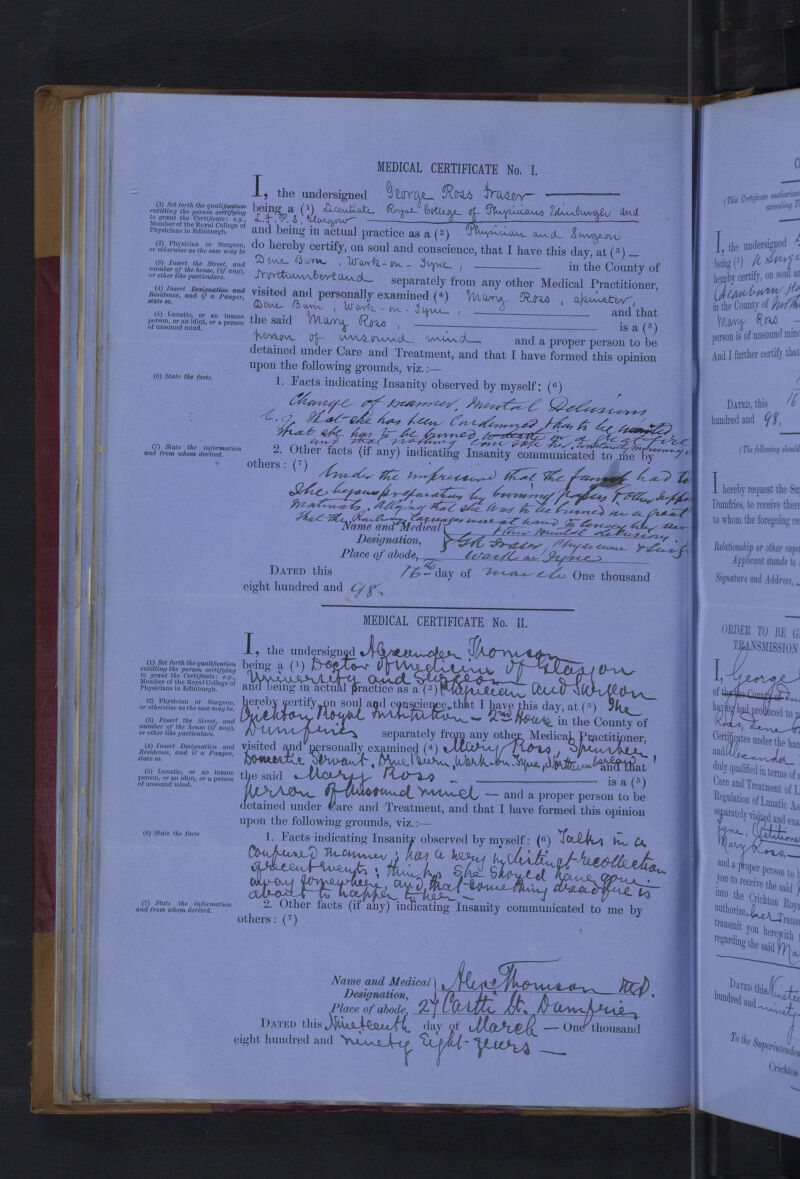 MEDICAL CERTIFICATE No. I.
I, the undersigned George Ross Fraser
(1) Set forth the qualification entitling the person certifying to grant the Certificate: e.g., Member of the Royal College of Physicians in Edinburgh.
being a (1) Licentiate Royal College of Physicians Edinburgh and
L.F.P.S. Glasgow
and being in actual practice as a (2) Physician and Surgeon
(2) Physician or Surgeon, or otherwise as the case may be
do hereby certify, on soul and conscience, that I have this day, at (3)
(3) Insert the Street, and number of the house, (if any), or other like particulars.
Dene Burn, Wark-on-Tyne, in the County of
Northumberland separately from any other Medical Practitioner,
(4) Insert Designation and Residence, and if a Pauper, state so.
visited and personally examined (4) Mary Ross, spinster,
Dene Burn, Wark-on-Tyne, and that
(5) Lunatic, or an insane person, or an idiot, or a person of unsound mind.
the said Mary Ross, is a (5)
person of unsound mind and a proper person to be
detained under Care and Treatment, and that I have formed this opinion
upon the following grounds, viz.:—
(6) State the facts.
1. Facts indicating Insanity observed by myself: (6)
Change of manner, Mental Delusions,
e.g. that she has been Condemned & has to be
that she has to be burned to death in a great fire
and that nothing can save her,
(7) State the information and from whom derived.
2. Other facts (if any) indicating Insanity communicated to me by
others: (7)
Under the impression that the had to
She began preparations by burning papers & other
materials, alleging that she was to be burned in a great
that the Railway Carriages were at hand to convey her
& other mental delusions.
Name and Medical Designation, G R Fraser, Physician & Surg.
Place of abode, Wark on Tyne
DATED this 16th day of March One thousand
eight hundred and 98.
MEDICAL CERTIFICATE No. II.
I, the undersigned Alexander Thomson
(1) Set forth the qualification entitling the person certifying to grant the Certificate: e.g., Member of the Royal College of Physicians in Edinburgh.
being a (1) Doctor of Medicine of Glasgow
University and Surgeon
and being in actual practice as a (2) Physician and Surgeon
(2) Physician or Surgeon, or otherwise as the case may be.
hereby certify, on soul and conscience, that I have this day, at (3) The
(3) Insert the Street, and number of the house (if any), or other like particulars.
Crichton Royal Institution - 2nd House in the County of
Dumfries separately from any other Medical Practitioner,
(4) Insert Designation and Residence, and if a Pauper, state so.
visited and personally examined (4) Mary Ross, Spinster,
Domestic Servant, Dene Burn, Wark-on-Tyne, Northumberland and that
(5) Lunatic, or an insane person, or an idiot, or a person of unsound mind.
the said Mary Ross is a (5)
person of unsound mind — and a proper person to be
detained under Care and Treatment, and that I have formed this opinion
upon the following grounds, viz.:—
(6) State the facts
1. Facts indicating Insanity observed by myself: (6) Talks in a
confused manner; has a very indistinct recollection
of recent events; thinks she should have gone
away somewhere, and that something dreadful is
about to happen to her —
(7) State the information and from whom derived.
2. Other facts (if any) indicating Insanity communicated to me by
others: (7)
Name and Medical Designation, Alexr Thomson M.D.
Place of abode, 27 Castle St. Dumfries
DATED this Nineteenth day of March — One thousand
eight hundred and ninety Eight years —
(This Certificate
I, the undersigned
being (1) A Surgeon
hereby certify, on soul
in the County of
Mary Ross
person is of unsound mind
And I further certify that
DATED, this 16
hundred and 98,
(The following should
I hereby request the
Dumfries, to receive
to whom the foregoing
Relationship or other
Applicant stands to
Signature and Address,
ORDER TO BE
TRANSMISSION
I, George
of the County of
having had produced to
Ross, Dene
Certificates under the
and Alexander
duly qualified in terms of
Care and Treatment of
Regulation of Lunatic
separately visited and
Tyne,
Mary Ross
and a proper person to
you to receive the said
into the Crichton
authorize her
transmit you herewith
regarding the said
DATED this
hundred and ninety
To the Superintendent
Crichton